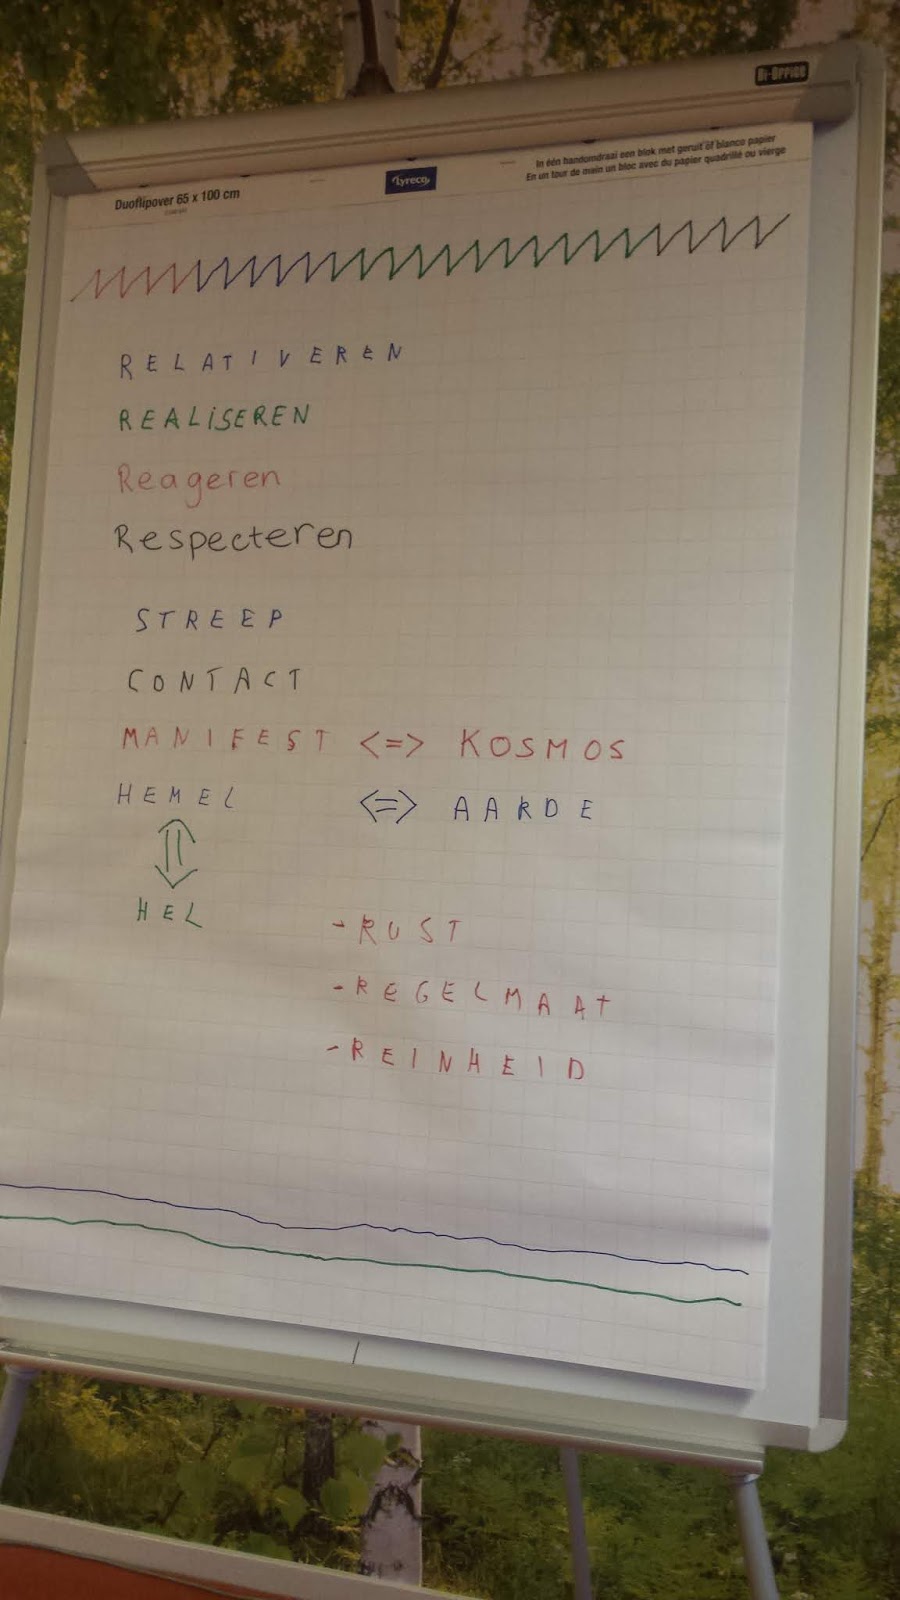 BI-OFFICE
Duoflipover 65 x 100 cm
Lyreco
In één handomdraai een blok met geruit of blanco papier
En un tour de main un bloc avec du papier quadrillé ou vierge
RELATIVEREN
REALiSEREN
Reageren
Respecteren
STREEP
CONTACT
MANIFEST <=> KOSMOS
HEMEL <=> AARDE
HEL
- RUST
- REGELMAAT
- REINHEID